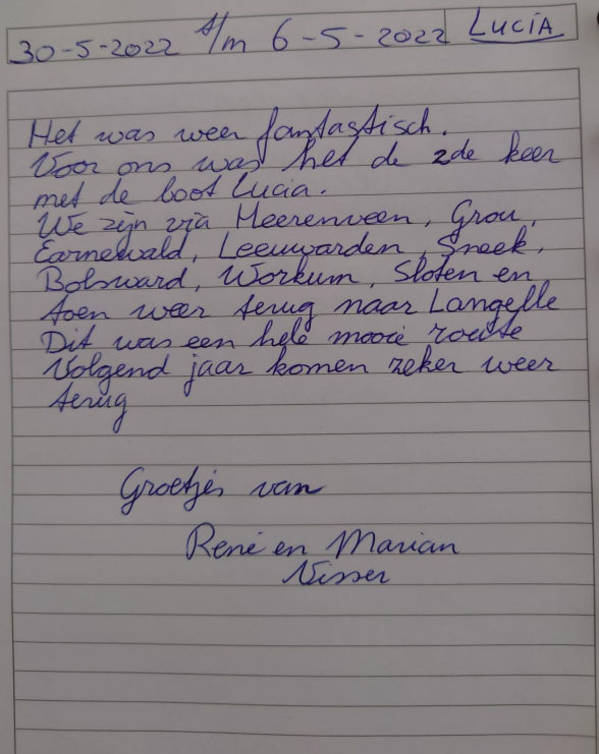 30-5-2022 t/m 6-5-2022 LUCIA
Het was weer fantastisch.
Voor ons was het de 2de keer
met de boot Lucia.
We zijn via Heerenveen, Grou,
Earnewald, Leeuwarden, Sneek,
Bolsward, Workum, Sloten en
toen weer terug naar Langelle
Dit was een hele mooie route
Volgend jaar komen zeker weer
terug
Groetjes van
René en Marian
Visser